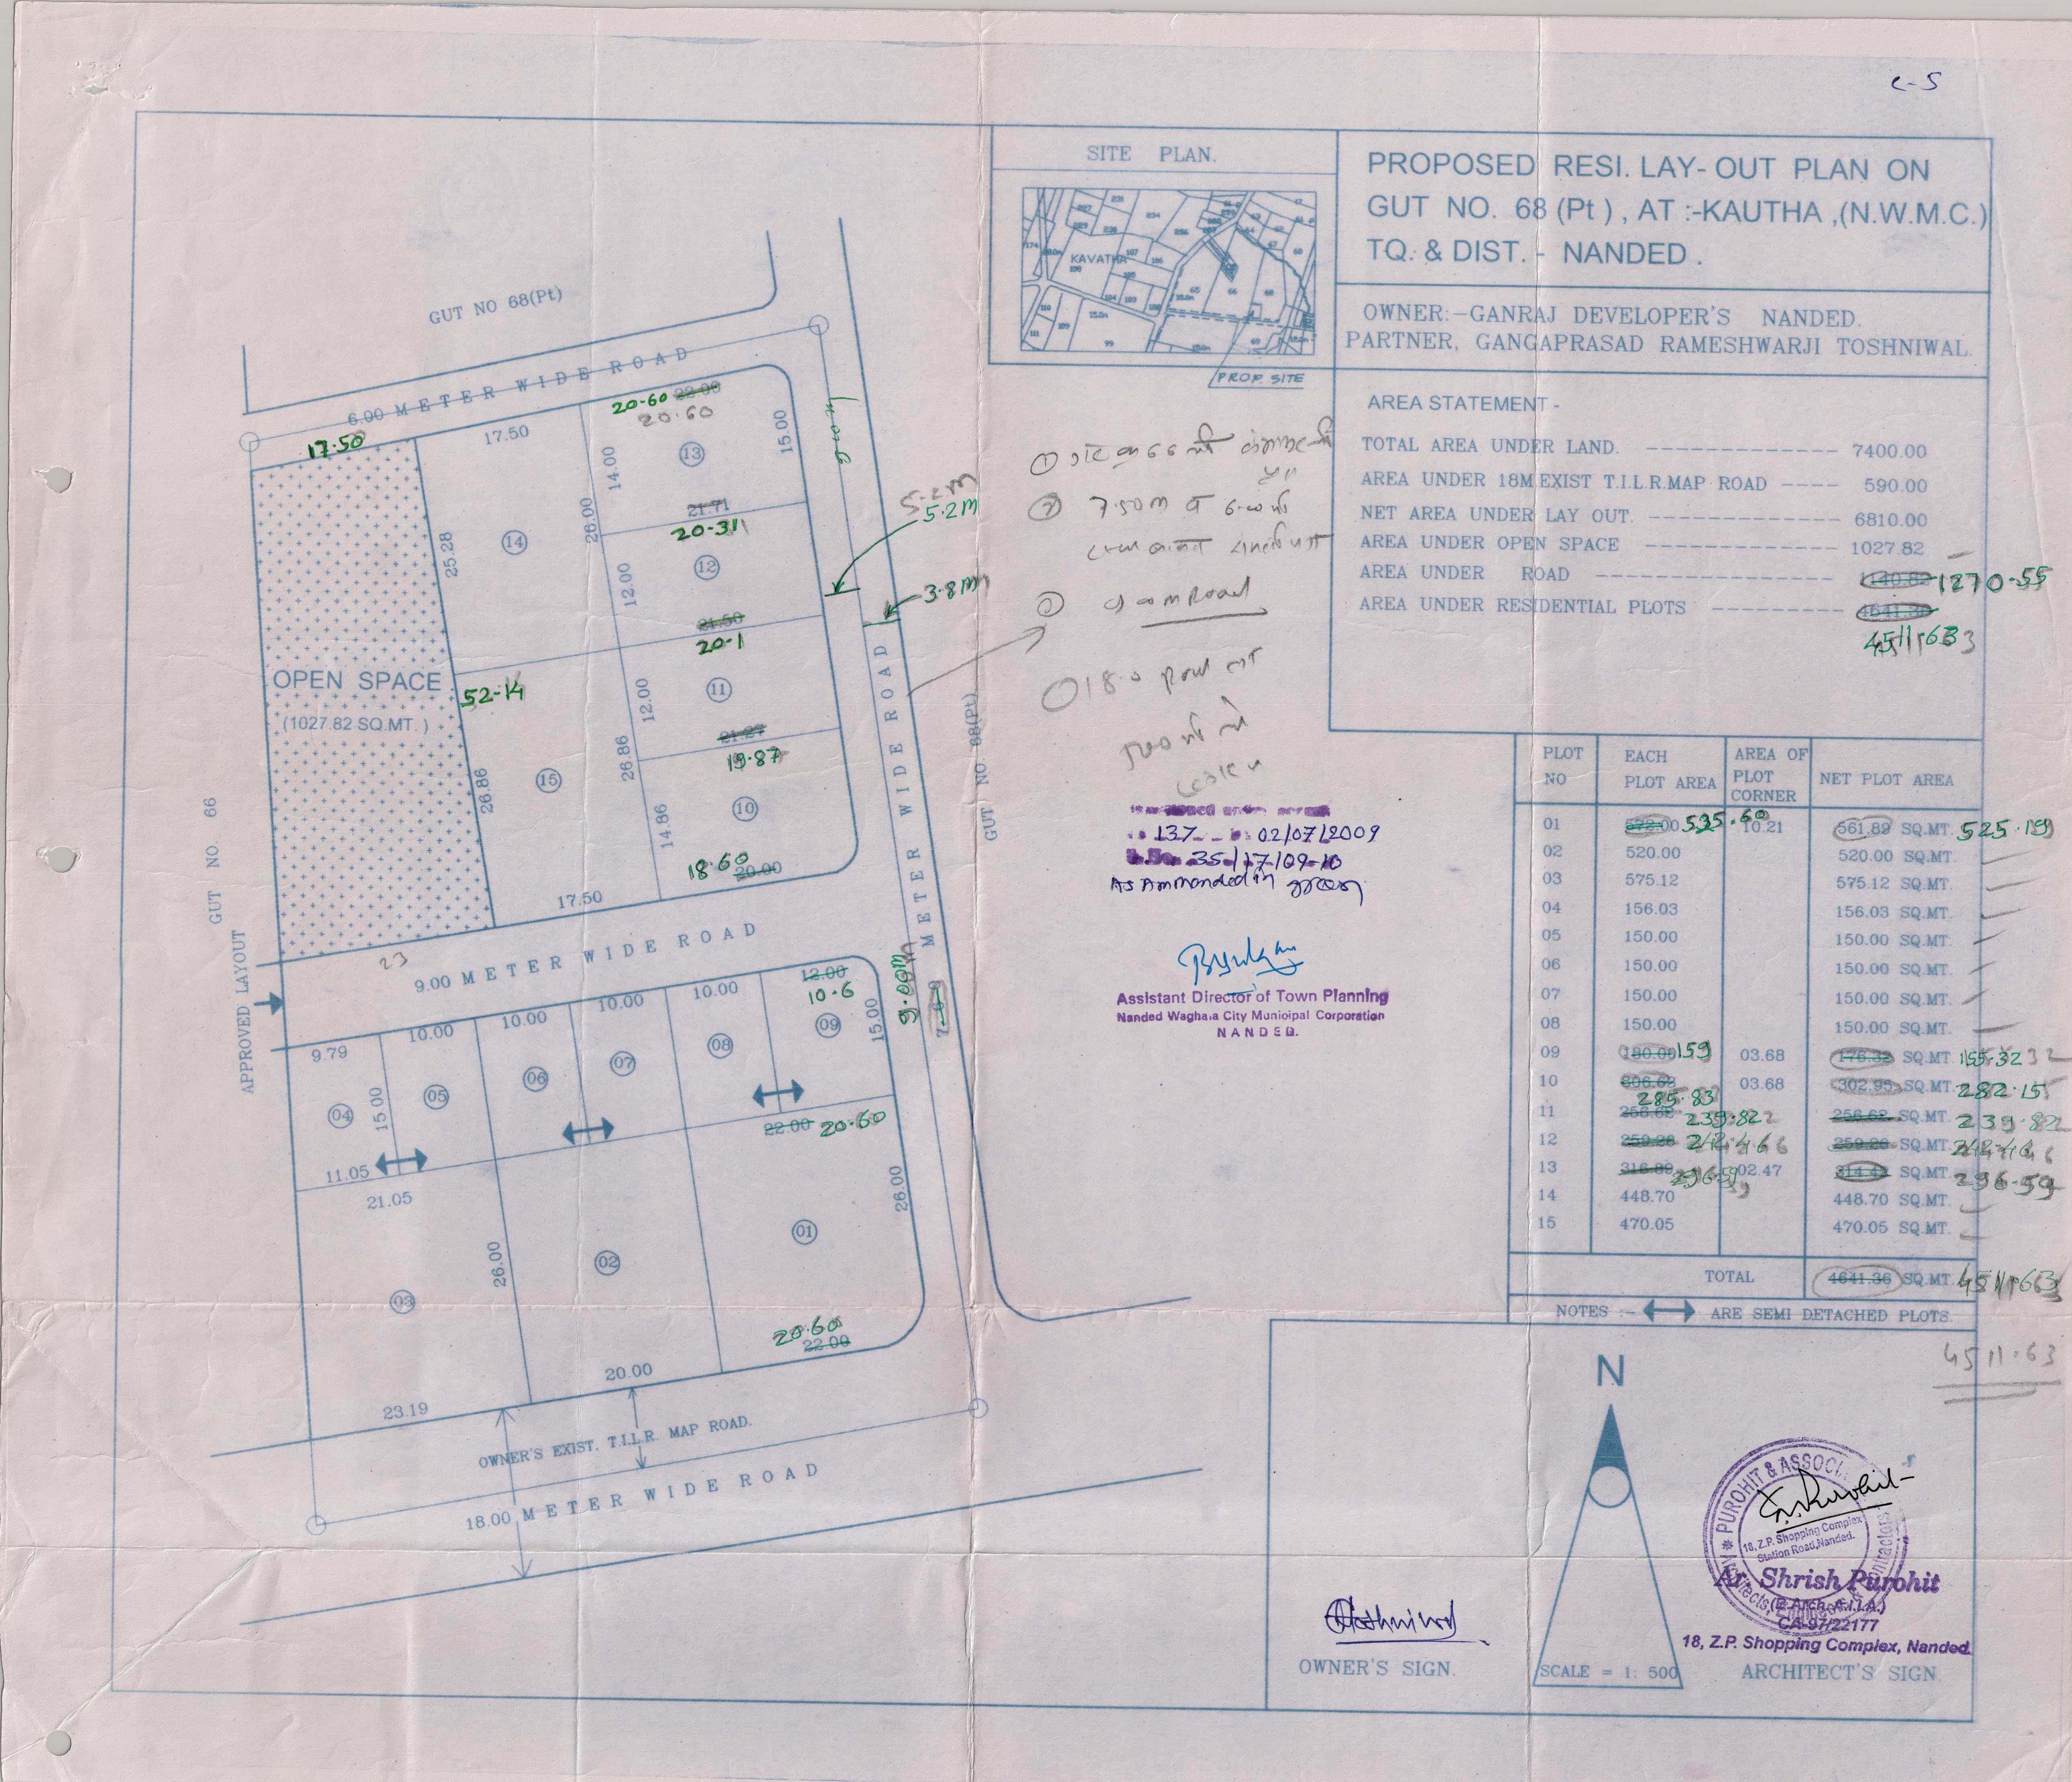 c-5
SITE PLAN.
KAVATHA
PROP. SITE
PROPOSED RESI. LAY-OUT PLAN ON
GUT NO. 68 (Pt ) , AT :-KAUTHA ,(N.W.M.C.)
TQ. & DIST. - NANDED .
OWNER:-GANRAJ DEVELOPER'S NANDED.
PARTNER, GANGAPRASAD RAMESHWARJI TOSHNIWAL.
AREA STATEMENT -
TOTAL AREA UNDER LAND. ------------- 7400.00
AREA UNDER 18M.EXIST T.I.L.R.MAP ROAD ---- 590.00
NET AREA UNDER LAY OUT. ------------- 6810.00
AREA UNDER OPEN SPACE ------------- 1027.82
AREA UNDER ROAD ---------------- 1140.82 1270-55
AREA UNDER RESIDENTIAL PLOTS --------- 4641.36
4511.63
GUT NO 68(Pt)
6.00 METER WIDE ROAD
17.50
17.50
20-60 22.00
20.60
15.00
14.00
13
21.71
20-31
26.00
25.28
14
12.00
12
21.50
20-1
5.2m
5.2M
3.8M
OPEN SPACE
(1027.82 SQ.MT. )
52-14
12.00
11
21.27
19.87
26.86
26.86
15
14.86
10
18.60 20.00
17.50
METER WIDE ROAD
GUT NO 68(Pt)
GUT NO. 66
APPROVED LAYOUT
23
9.00 METER WIDE ROAD
9.00M
12.00
10.6
15.00
9.79
10.00
10.00
10.00
10.00
04
05
06
07
08
09
15.00
11.05
21.05
22.00 20.60
26.00
26.00
03
02
01
20.60
22.00
20.00
23.19
OWNER'S EXIST. T.I.L.R. MAP ROAD.
18.00 METER WIDE ROAD
137 02/07/2009
35/17/09-10
As Ammended in green
Assistant Director of Town Planning
Nanded Waghala City Municipal Corporation
NANDED.
PLOT NO EACH PLOT AREA AREA OF PLOT CORNER NET PLOT AREA
01 572.00 535.60 10.21 561.89 SQ.MT. 525.19
02 520.00 520.00 SQ.MT.
03 575.12 575.12 SQ.MT.
04 156.03 156.03 SQ.MT.
05 150.00 150.00 SQ.MT.
06 150.00 150.00 SQ.MT.
07 150.00 150.00 SQ.MT.
08 150.00 150.00 SQ.MT.
09 180.00 159 03.68 176.32 SQ.MT. 155.32
10 306.63 285.83 03.68 302.95 SQ.MT. 282.15
11 256.62 239.82 256.62 SQ.MT. 239.82
12 259.26 242.46 259.26 SQ.MT. 242.46
13 316.89 02.47 314.42 SQ.MT. 296.59
14 448.70 448.70 SQ.MT.
15 470.05 470.05 SQ.MT.
TOTAL 4641.36 SQ.MT. 4511.63
NOTES :- ARE SEMI DETACHED PLOTS.
4511.63
N
SCALE = 1: 500
OWNER'S SIGN.
PUROHIT & ASSOCI
18, Z.P. Shopping Complex
Station Road,Nanded.
Ar. Shrish Purohit
(B.Arch. A.I.I.A.)
CA-97/22177
18, Z.P. Shopping Complex, Nanded.
ARCHITECT'S SIGN.